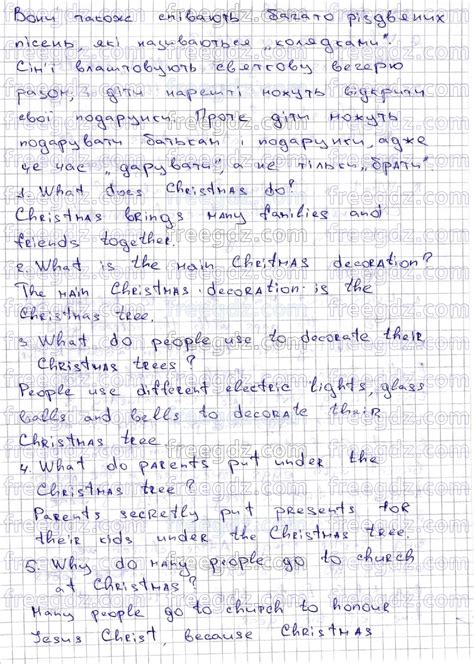 Вони також співають багато різдвяних
пісень, які називаються „колядками".
Сім'ї влаштовують святкову вечерю
разом, з діти нарешті можуть відкрити
свої подарунки. Проте діти можуть
подарувати батькам і подарунки, адже
це час „дарувати", а не тільки „брати"
1. What does Christmas do?
Christmas brings many families and
friends together.
2. What is the main Chritmas decoration?
The main Christmas decoration is the
Christmas tree.
3. What do people use to decorate their
Christmas trees?
People use different electric lights, glass
balls and bells to decorate their
Christmas tree
4. What do parents put under the
Christmas tree?
Parents secretly put presents for
their kids under the Christmas tree.
5. Why do many people go to church
at Christmas?
Many people go to church to honour
Jesus Christ, because Christmas